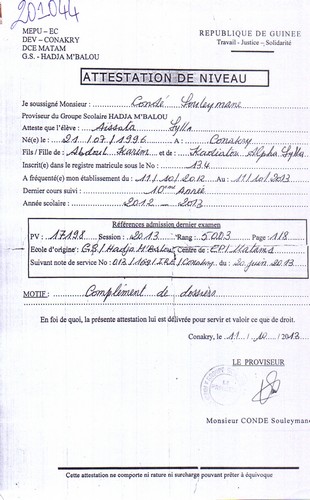 201044
MEPU - EC
DEV - CONAKRY
DCE MATAM
G.S. - HADJA M'BALOU
REPUBLIQUE DE GUINEE
Travail - Justice - Solidarité
ATTESTATION DE NIVEAU
Je soussigné Monsieur : Condé Souleymane
Proviseur du Groupe Scolaire HADJA M'BALOU
Atteste que l'élève : Aissata Sylla
Né(e) le : 21/07/1996 A : Conakry
Fils / Fille de : Abdoul Karim et de : Kadiatou Alpha Sylla
Inscrit(e) dans le registre matricule sous le N° : 134
A fréquenté(e) mon établissement du 11/10/2012 Au 11/10/2013
Dernier cours suivi : 10ème année
Année scolaire : 2012 - 2013
Références admission dernier examen
PV : 17198 Session : 2013 Rang : 5003 Page : 118
Ecole d'origine : GS/Hadja M'Balou Centre de : EP/Matam
Suivant note de service No : /Conakry du : 20 juin 2013
MOTIF : Complément de dossiers
En foi de quoi, la présente attestation lui est délivrée pour servir et valoir ce que de droit.
Conakry, le 11/10/2013
LE PROVISEUR
Monsieur CONDE Souleymane
Cette attestation ne comporte ni rature ni surcharge pouvant prêter à équivoque